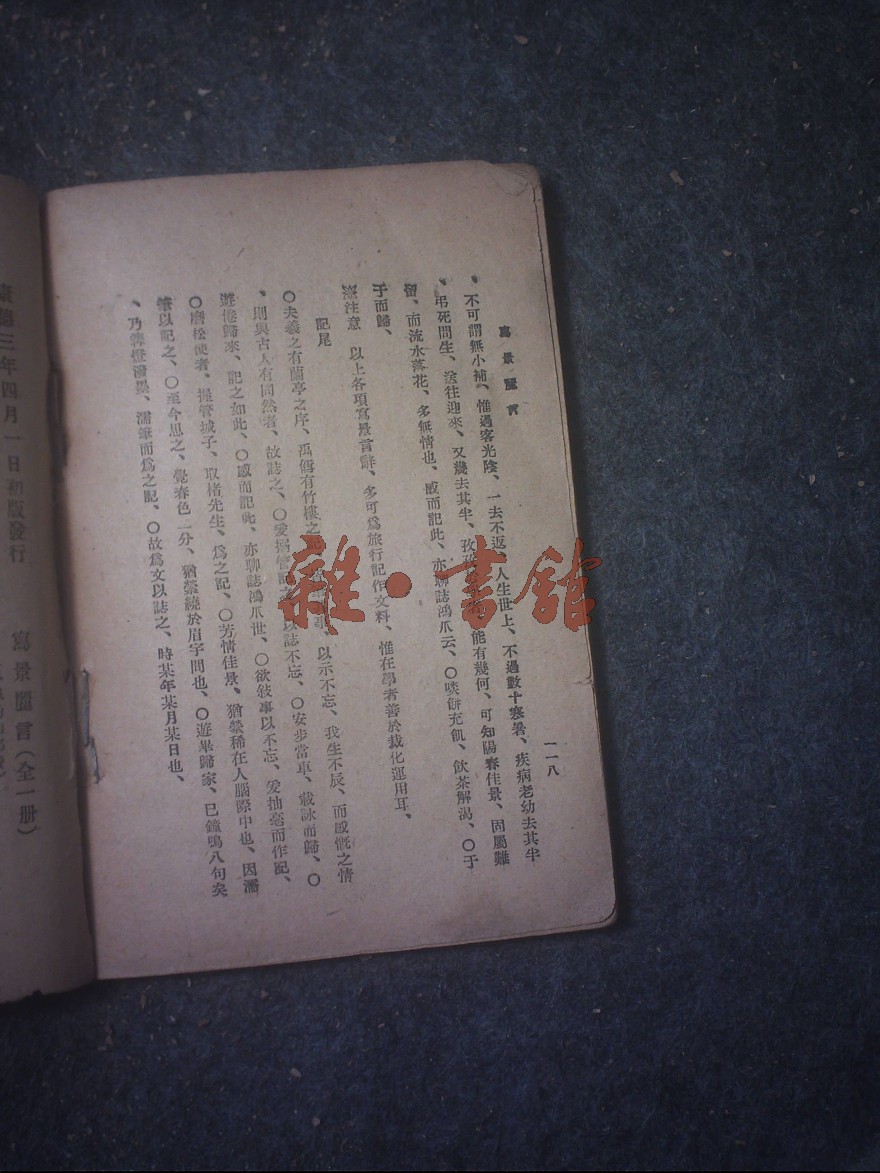 寫景麗言
一一八
、不可謂無小補、惟過客光陰、一去不返、人生世上、不過數十寒暑、疾病老幼去其半
、弔死問生、送往迎來、又幾去其半、孜孜 能有幾何、可知陽春佳景、固屬難
留、而流水落花、多無情也、感而記此、亦聊誌鴻爪云、〇啖餅充飢、飲茶解渴、〇于
于而歸、
注意 以上各項寫景言辭、多可為旅行記作文料、惟在學者善於裁化運用耳、
記尾
〇夫羲之有蘭亭之序、禹偁有竹樓之記、 以示不忘、我生不辰、而感慨之情
、則與古人有同然者、故誌之、〇爰搦管記之 以誌不忘、〇安步當車、載詠而歸、〇
遊倦歸來、記之如此、〇感而記此、亦聊誌鴻爪世、〇欲敍事以不忘、爰抽毫而作記、
〇唐松使者、握管城子、取楮先生、為之記、〇芳情佳景、猶縈稀在人腦際中也、因濡
筆以記之、〇至今思之、覺春色一分、猶縈繞於眉宇間也、〇遊畢歸家、已鐘鳴八句矣
、乃 燈 墨、濡筆而為之記、〇故為文以誌之、時某年某月某日也、
康德三年四月一日初版發行
寫景麗言（全一册）
雜·書館